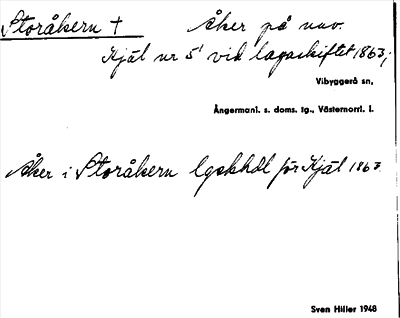 Storåkern † Åker på nuv.
Kjäl nr 5¹ vid lagaskiftet 1863;
Vibyggerå sn,
Ångermanl. s. doms. tg., Västernorrl. l.
Åker i Storåkern lgskhdl för Kjäl 1863.
Sven Hiller 1948